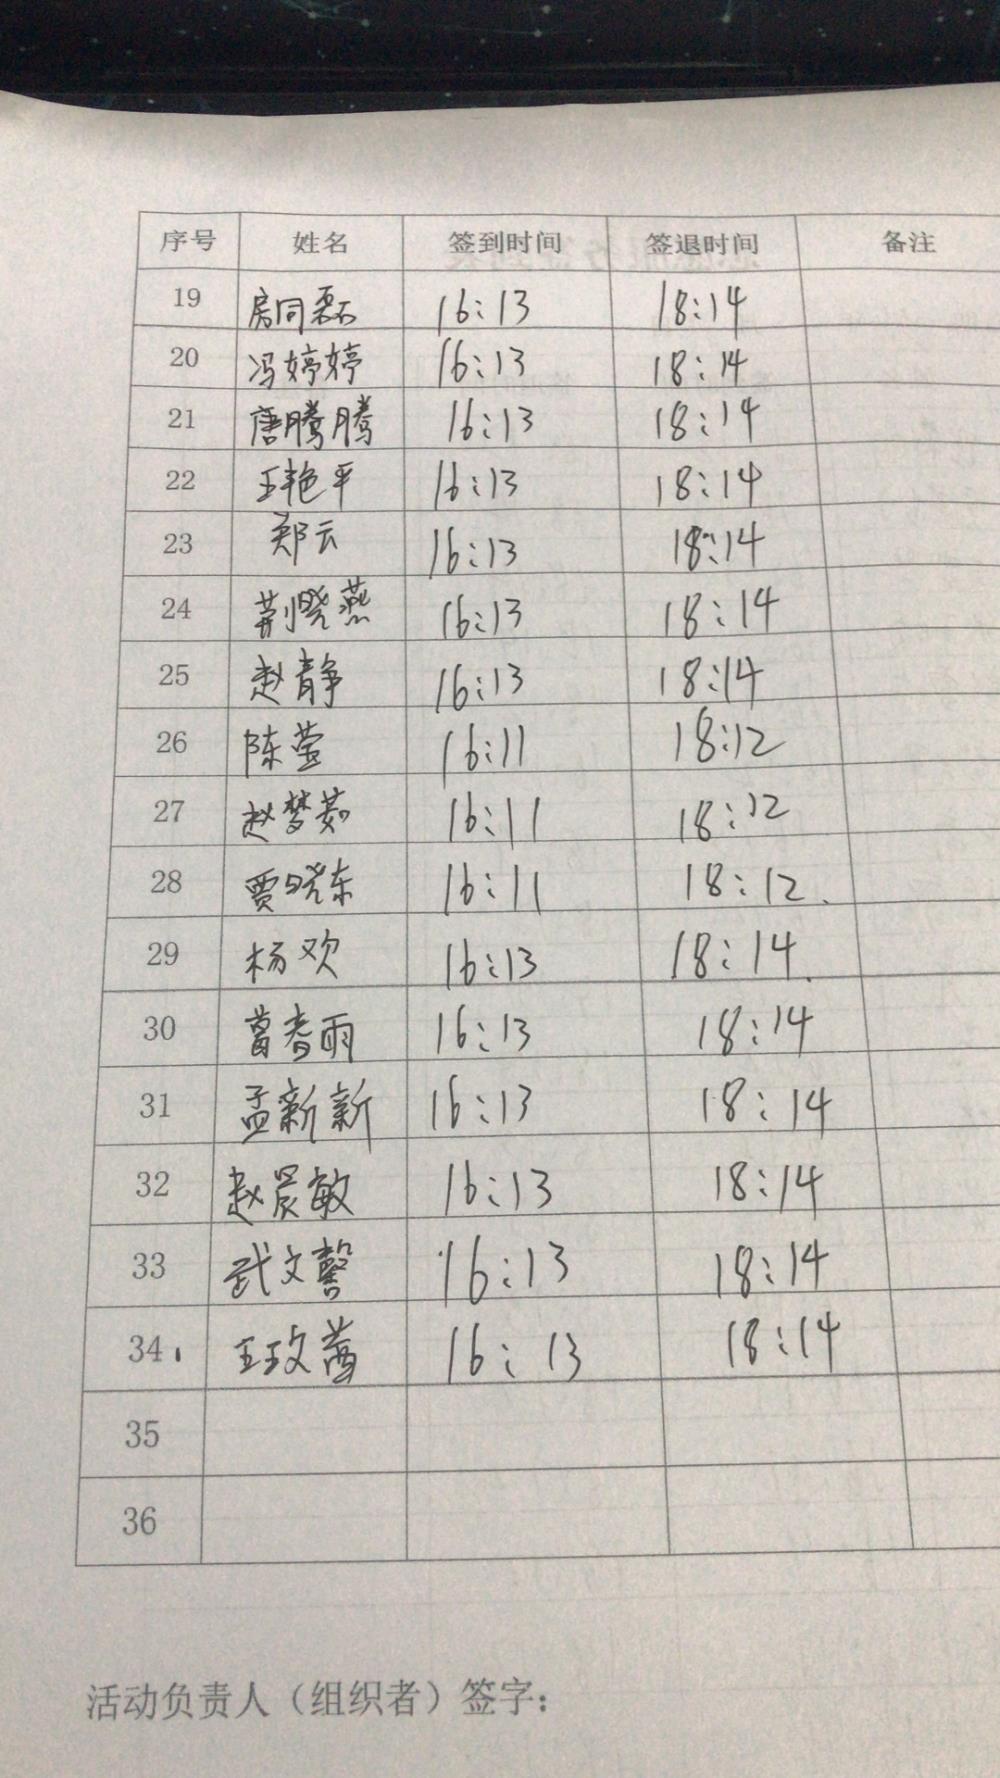 序号 姓名 签到时间 签退时间 备注
19 房同磊 16:13 18:14
20 冯婷婷 16:13 18:14
21 唐腾腾 16:13 18:14
22 王艳平 16:13 18:14
23 郑云 16:13 18:14
24 荆晓燕 16:13 18:14
25 赵静 16:13 18:14
26 陈莹 16:11 18:12
27 赵梦茹 16:11 18:12
28 贾晓东 16:11 18:12.
29 杨欢 16:13 18:14.
30 葛春雨 16:13 18:14
31 孟新新 16:13 18:14
32 赵晨敏 16:13 18:14
33 武文馨 16:13 18:14
34 王玫茜 16:13 18:14
35
36
活动负责人（组织者）签字：